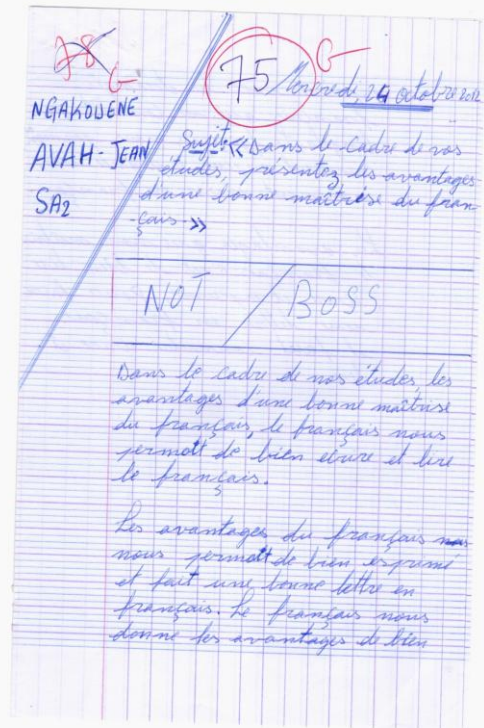 78 G
75 G
Mercredi, 24 octobre 2012
NGAKOUENE
AVAH-JEAN
SA2
Sujet: << Dans le cadre de vos
études, présentez les avantages
d'une bonne maîtrise du fran
-çais. >>
NOT / BOSS
Dans le cadre de nos études, les
avantages d'une bonne maîtrise
du français, le français nous
permett de bien ecure et lire
le français.
Les avantages du français
nous permett de bien esprime
et fait une bonne lettre en
français. Le français nous
donne les avantages de bien